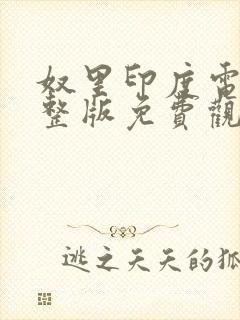 奴里印度電
整版免費觀
逃之夭夭的狐